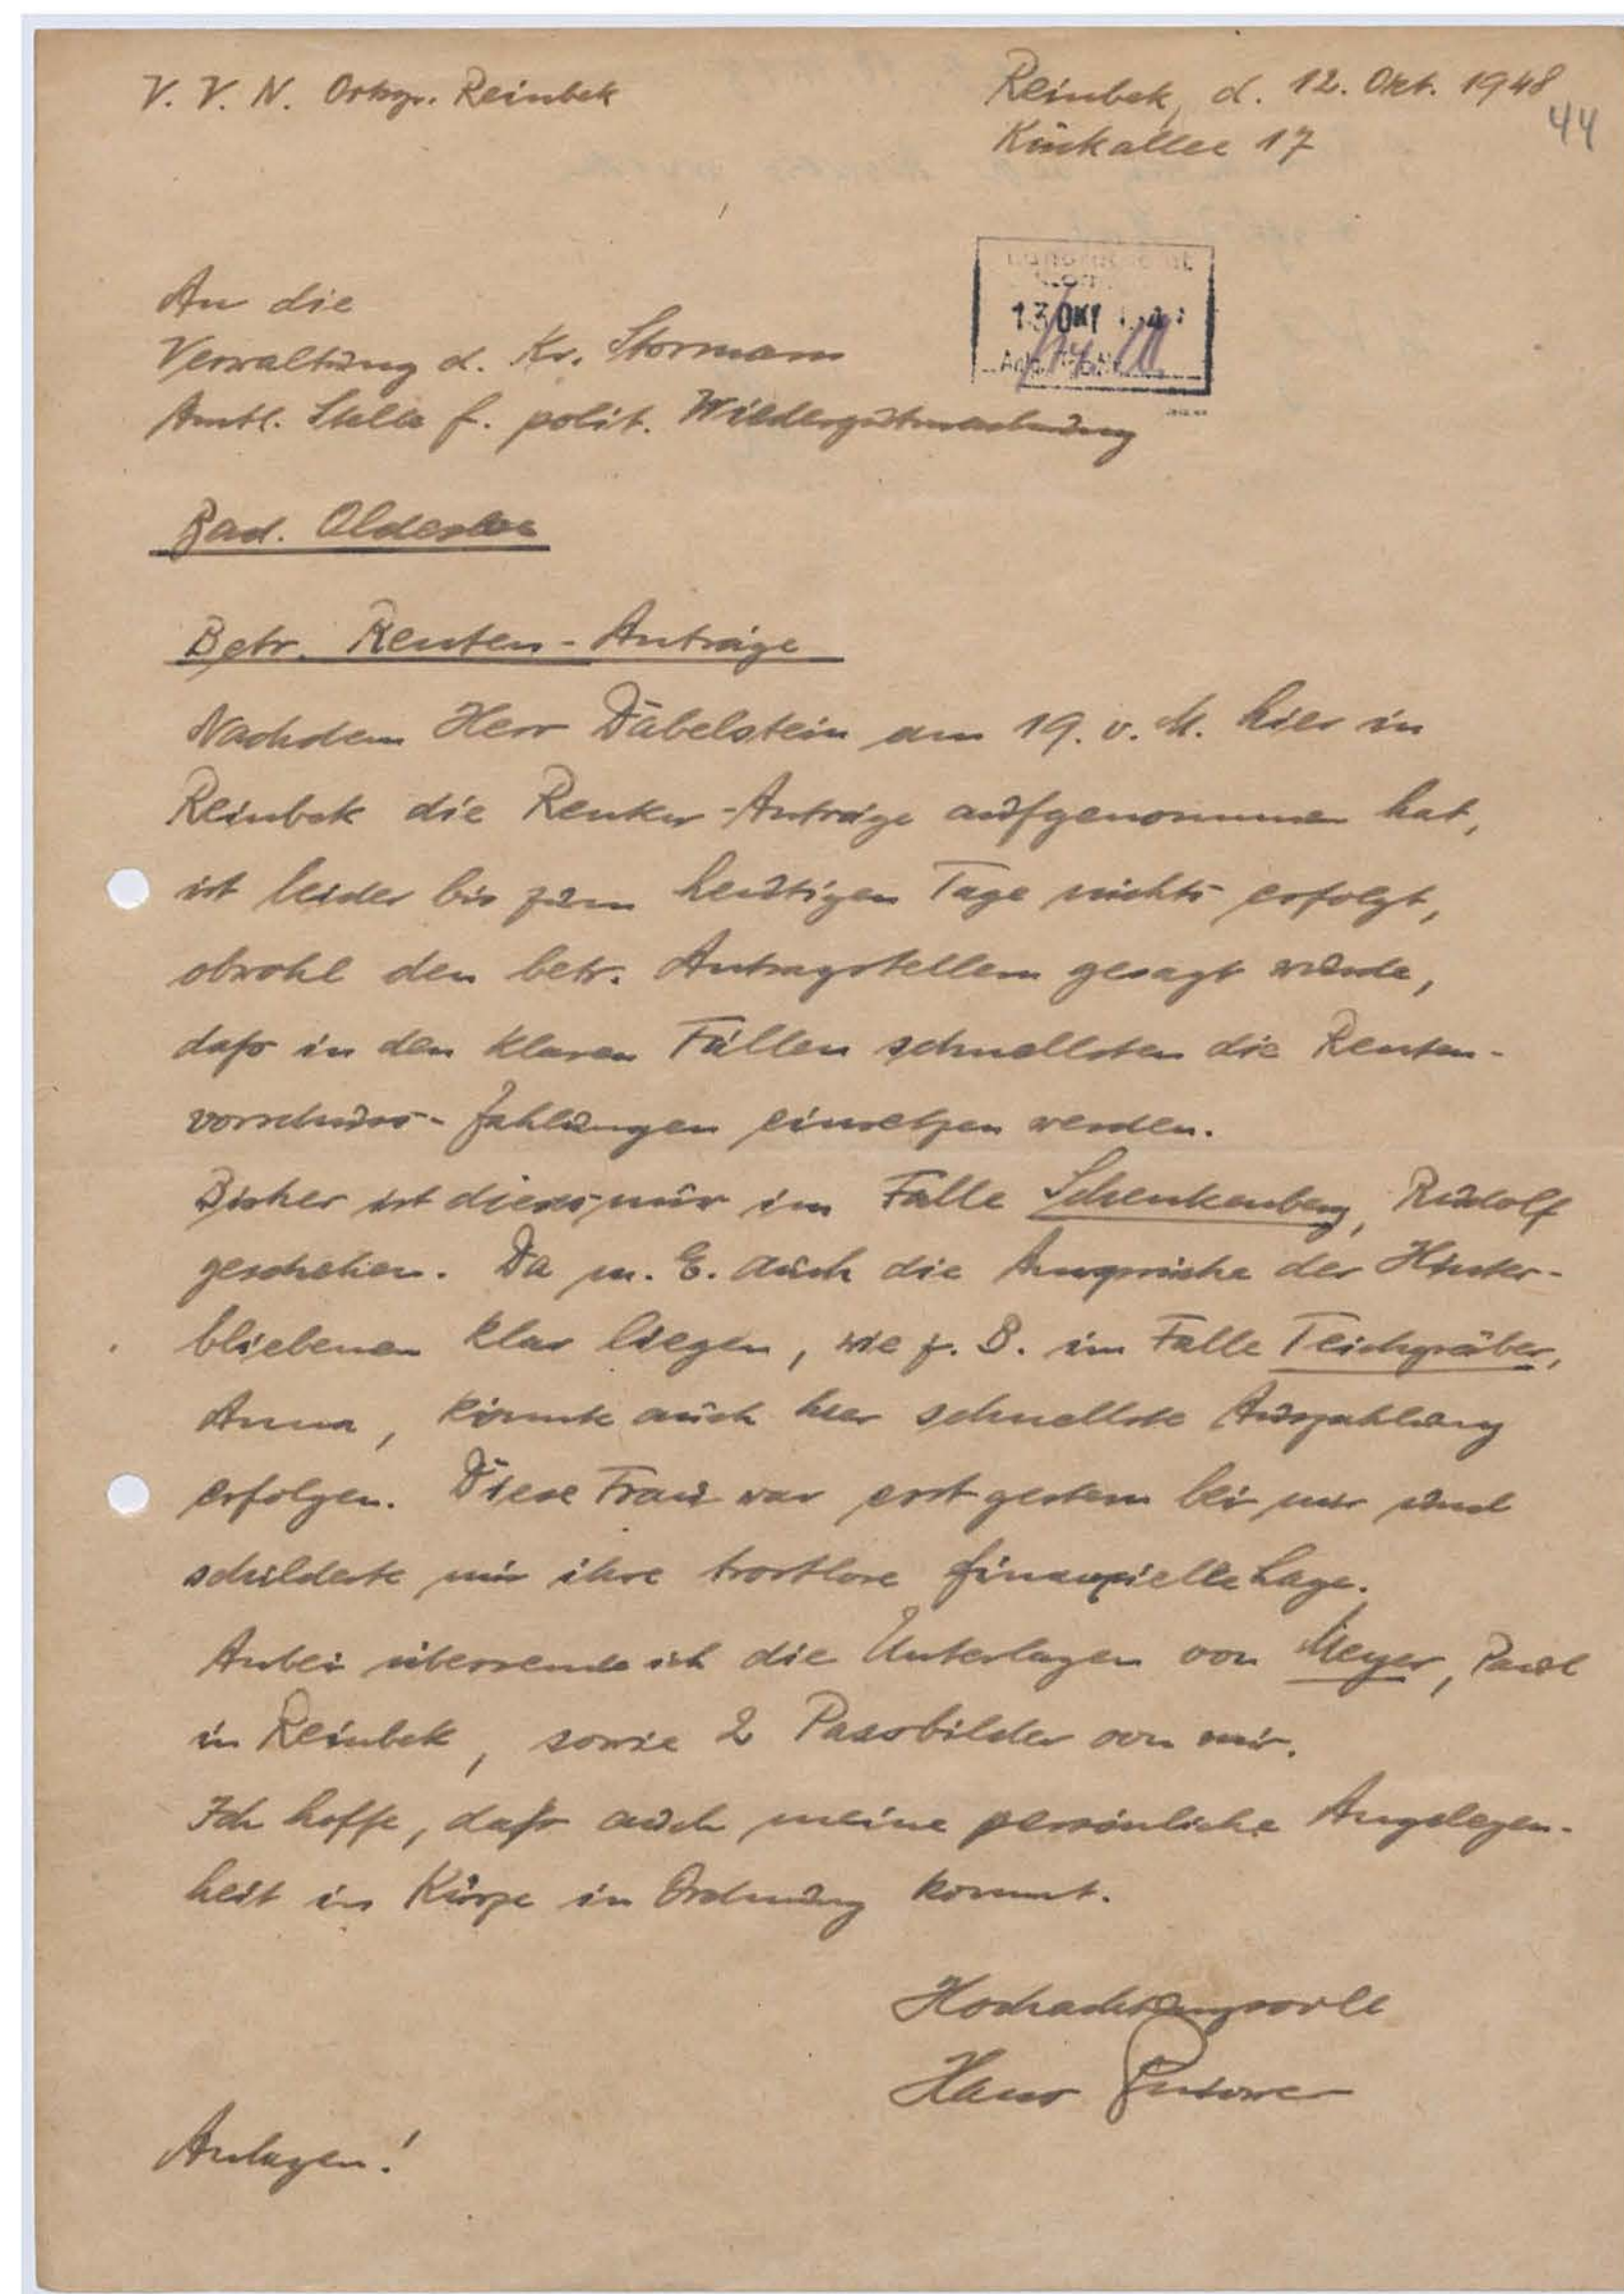 V. V. N. Ortsgr. Reinbek
Reinbek, d. 12. Okt. 1948
44
Kückallee 17
An die
Verwaltung d. Kr. Stormarn
Amtl. Stelle f. polit. Wiedergutmachung
13. OKT
Bad. Oldesloe
Betr. Renten-Anträge
Nachdem Herr Däbelstein am 19. v. M. hier in
Reinbek die Renten-Anträge aufgenommen hat,
ist leider bis zum heutigen Tage nichts erfolgt,
obwohl den betr. Antragstellern gesagt wurde,
daß in den klaren Fällen schnellstens die Renten-
vorschuss-Zahlungen einsetzen werden.
Bisher ist dieses nur im Falle Schenkenberg, Rudolf
geschehen. Da m. E. auch die Ansprüche der Hinter-
bliebenen klar liegen, wie z. B. im Falle Teichgräber,
Anna, könnte auch hier schnellste Auszahlung
erfolgen. Diese Frau war erst gestern bei mir und
schilderte mir ihre trostlose finanzielle Lage.
Anbei übersende ich die Unterlagen von Meyer, Paul
in Reinbek, sowie 2 Passbilder von mir.
Ich hoffe, daß auch meine persönliche Angelegen-
heit in Kürze in Ordnung kommt.
Hochachtungsvoll
Hans
Anlagen!